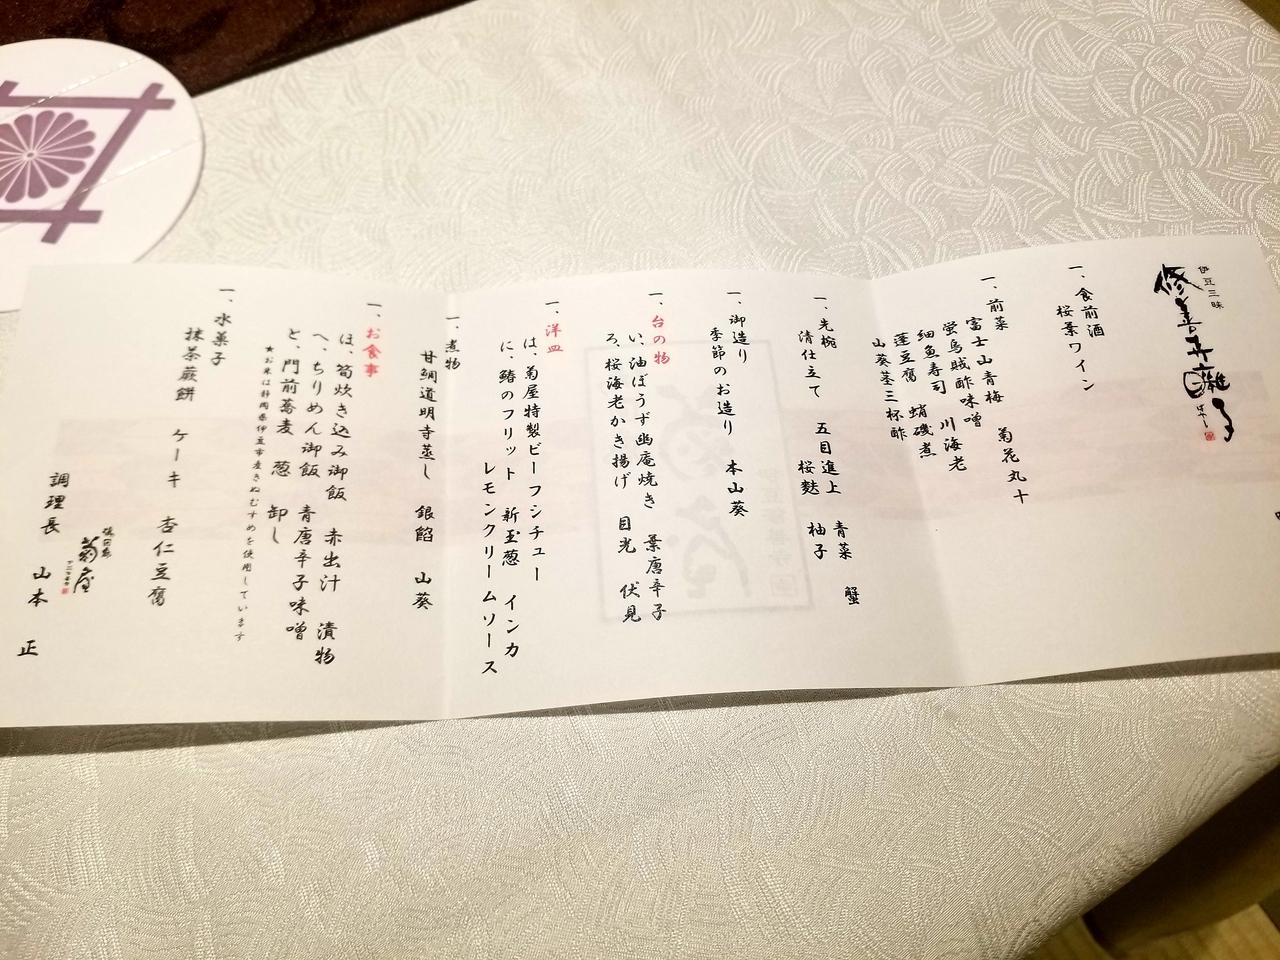 伊豆三昧
修善寺囃子
はやし
一、食前酒
桜葉ワイン
一、前菜
富士山青梅 菊花丸十
蛍烏賊酢味噌 川海老
細魚寿司 蛸磯煮
蓬豆腐
山葵茎三杯酢
一、先椀
清仕立て 五目進上 青菜 蟹
桜麩 柚子
一、御造り
季節のお造り 本山葵
一、台の物
い、油ぼうず幽庵焼き 葉唐辛子
ろ、桜海老かき揚げ 目光 伏見
一、洋皿
は、菊屋特製ビーフシチュー
に、鰆のフリット 新玉葱 インカ
レモンクリームソース
一、煮物
甘鯛道明寺蒸し 銀餡 山葵
一、お食事
ほ、筍炊き込み御飯 赤出汁 漬物
へ、ちりめん御飯 青唐辛子味噌
と、門前蕎麦 葱 卸し
★お米は静岡県伊豆市産きぬむすめを使用しています
一、水菓子
抹茶蕨餅 ケーキ 杏仁豆腐
菊屋
調理長 山本 正